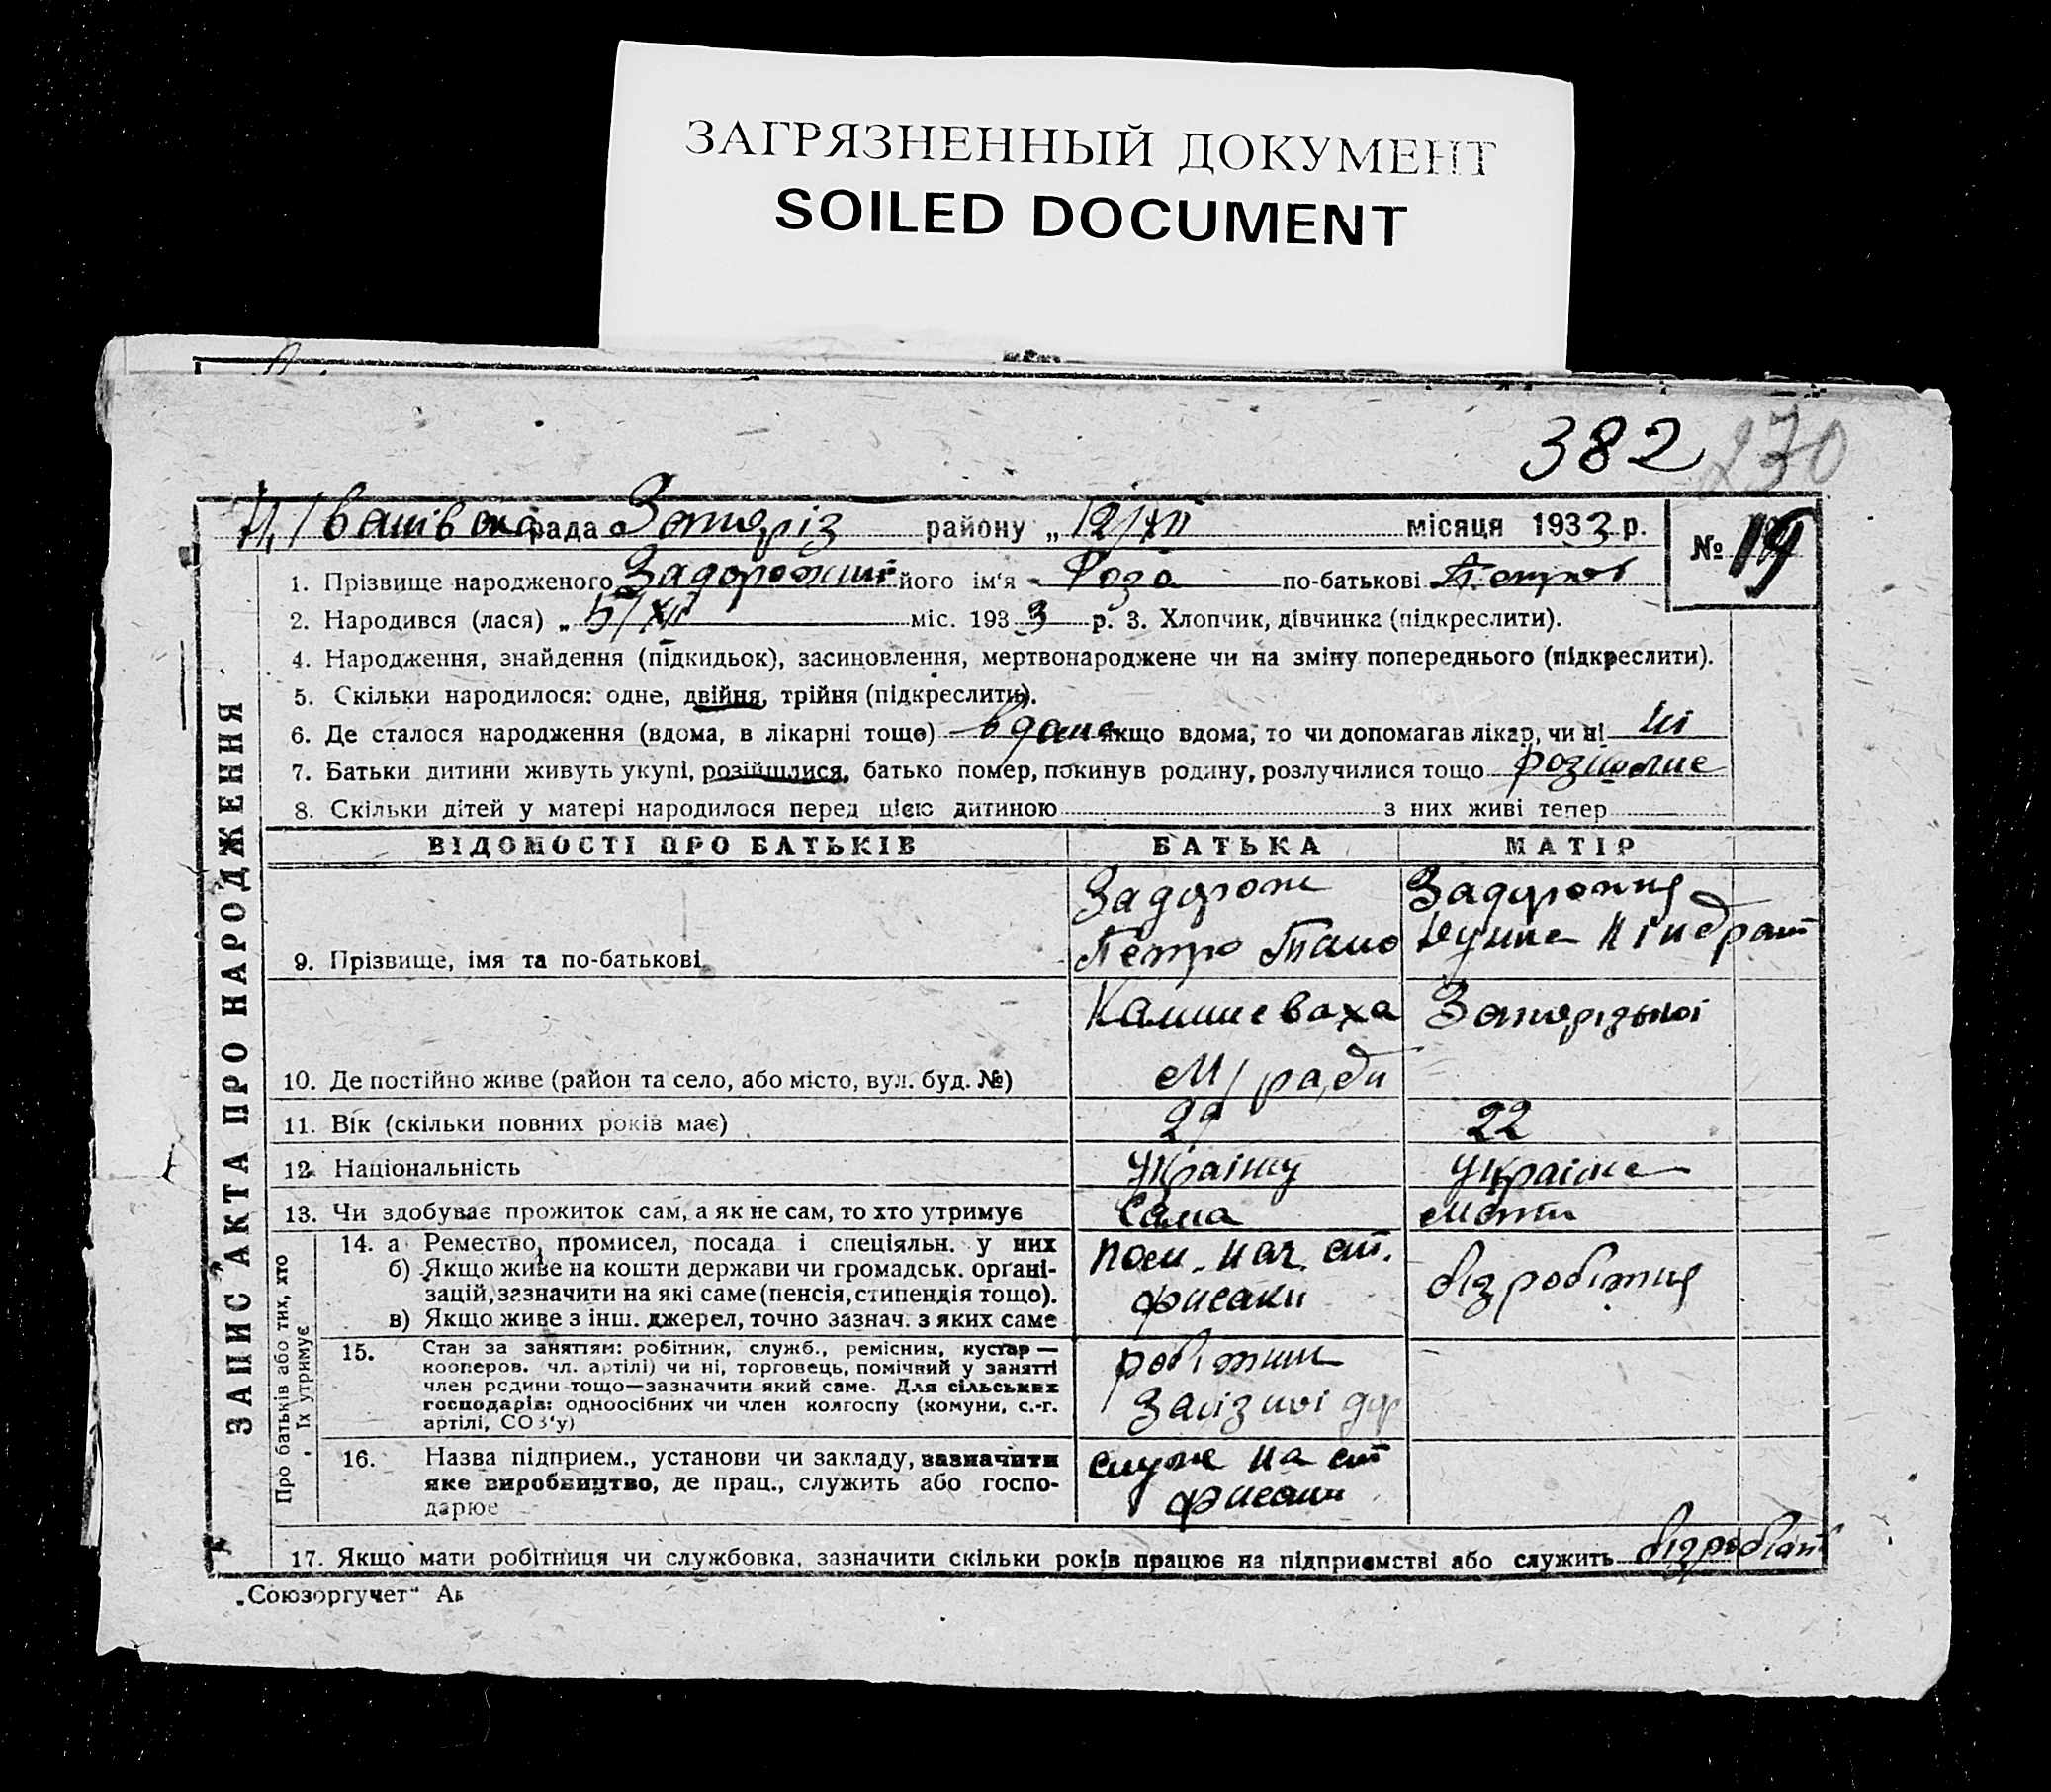 ЗАГРЯЗНЕННЫЙ ДОКУМЕНТ
SOILED DOCUMENT
382 230
рада Запоріз району „ 12/XII місяця 1933 р.
№ 19
1. Прізвище народженого Задорожни його ім'я Роза по-батькові Петров
2. Народився (лася) „ 5/XII міс. 1933 р. 3. Хлопчик, дівчинка (підкреслити).
4. Народження, знайдення (підкидьок), засиновлення, мертвонароджене чи на зміну попереднього (підкреслити).
5. Скільки народилося: одне, двійня, трійня (підкреслити).
6. Де сталося народження (вдома, в лікарні тощо) вдома якщо вдома, то чи допомагав лікар, чи ні ні
7. Батьки дитини живуть укупі, розійшлися, батько помер, покинув родину, розлучилися тощо
8. Скільки дітей у матері народилося перед цією дитиною з них живі тепер
ЗАПИС АКТА ПРО НАРОДЖЕННЯ
ВІДОМОСТІ ПРО БАТЬКІВ БАТЬКА МАТІР
Задорож Задорожня
9. Прізвище, імя та по-батькові Петро
Камишеваха Запорізької
10. Де постійно живе (район та село, або місто, вул. буд. №) М/ради
11. Вік (скільки повних років має) 29 22
12. Національність
13. Чи здобуває прожиток сам, а як не сам, то хто утримує Сама мати
Про батьків або тих, хто їх утримує
14. а Ремество, промисел, посада і спеціяльн. у них
б) Якщо живе на кошти держави чи громадськ. органі-
зацій, зазначити на які саме (пенсія, стипендія тощо).
в) Якщо живе з інш. джерел, точно зазнач. з яких саме
пом. нач. ст.
15. Стан за заняттям: робітник, служб., ремісник, кустар —
кооперов. чл. артілі) чи ні, торговець, помічний у занятті
член родини тощо—зазначити який саме. Для сільських
господарів: одноосібних чи член колгоспу (комуни, с.-г.
артілі, СОЗ'у)
робітник
16. Назва підприєм., установи чи закладу, зазначити
яке виробництво, де прац., служить або госпо-
дарює
служ на ст
17. Якщо мати робітниця чи службовка, зазначити скільки років працює на підприємстві або служить
„Союзоргучет"